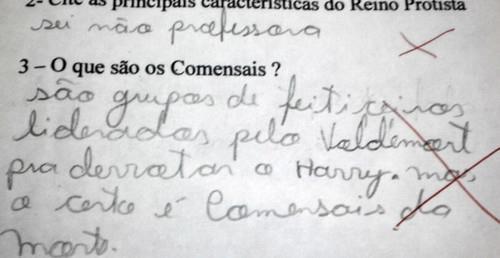 2- Cite as principais características do Reino Protista
sei não professora
3 – O que são os Comensais ?
são grupos de feiticeiros
liderados pelo Valdemort
pra derrotar o Harry. mas
o certo é Comensais da
morte.